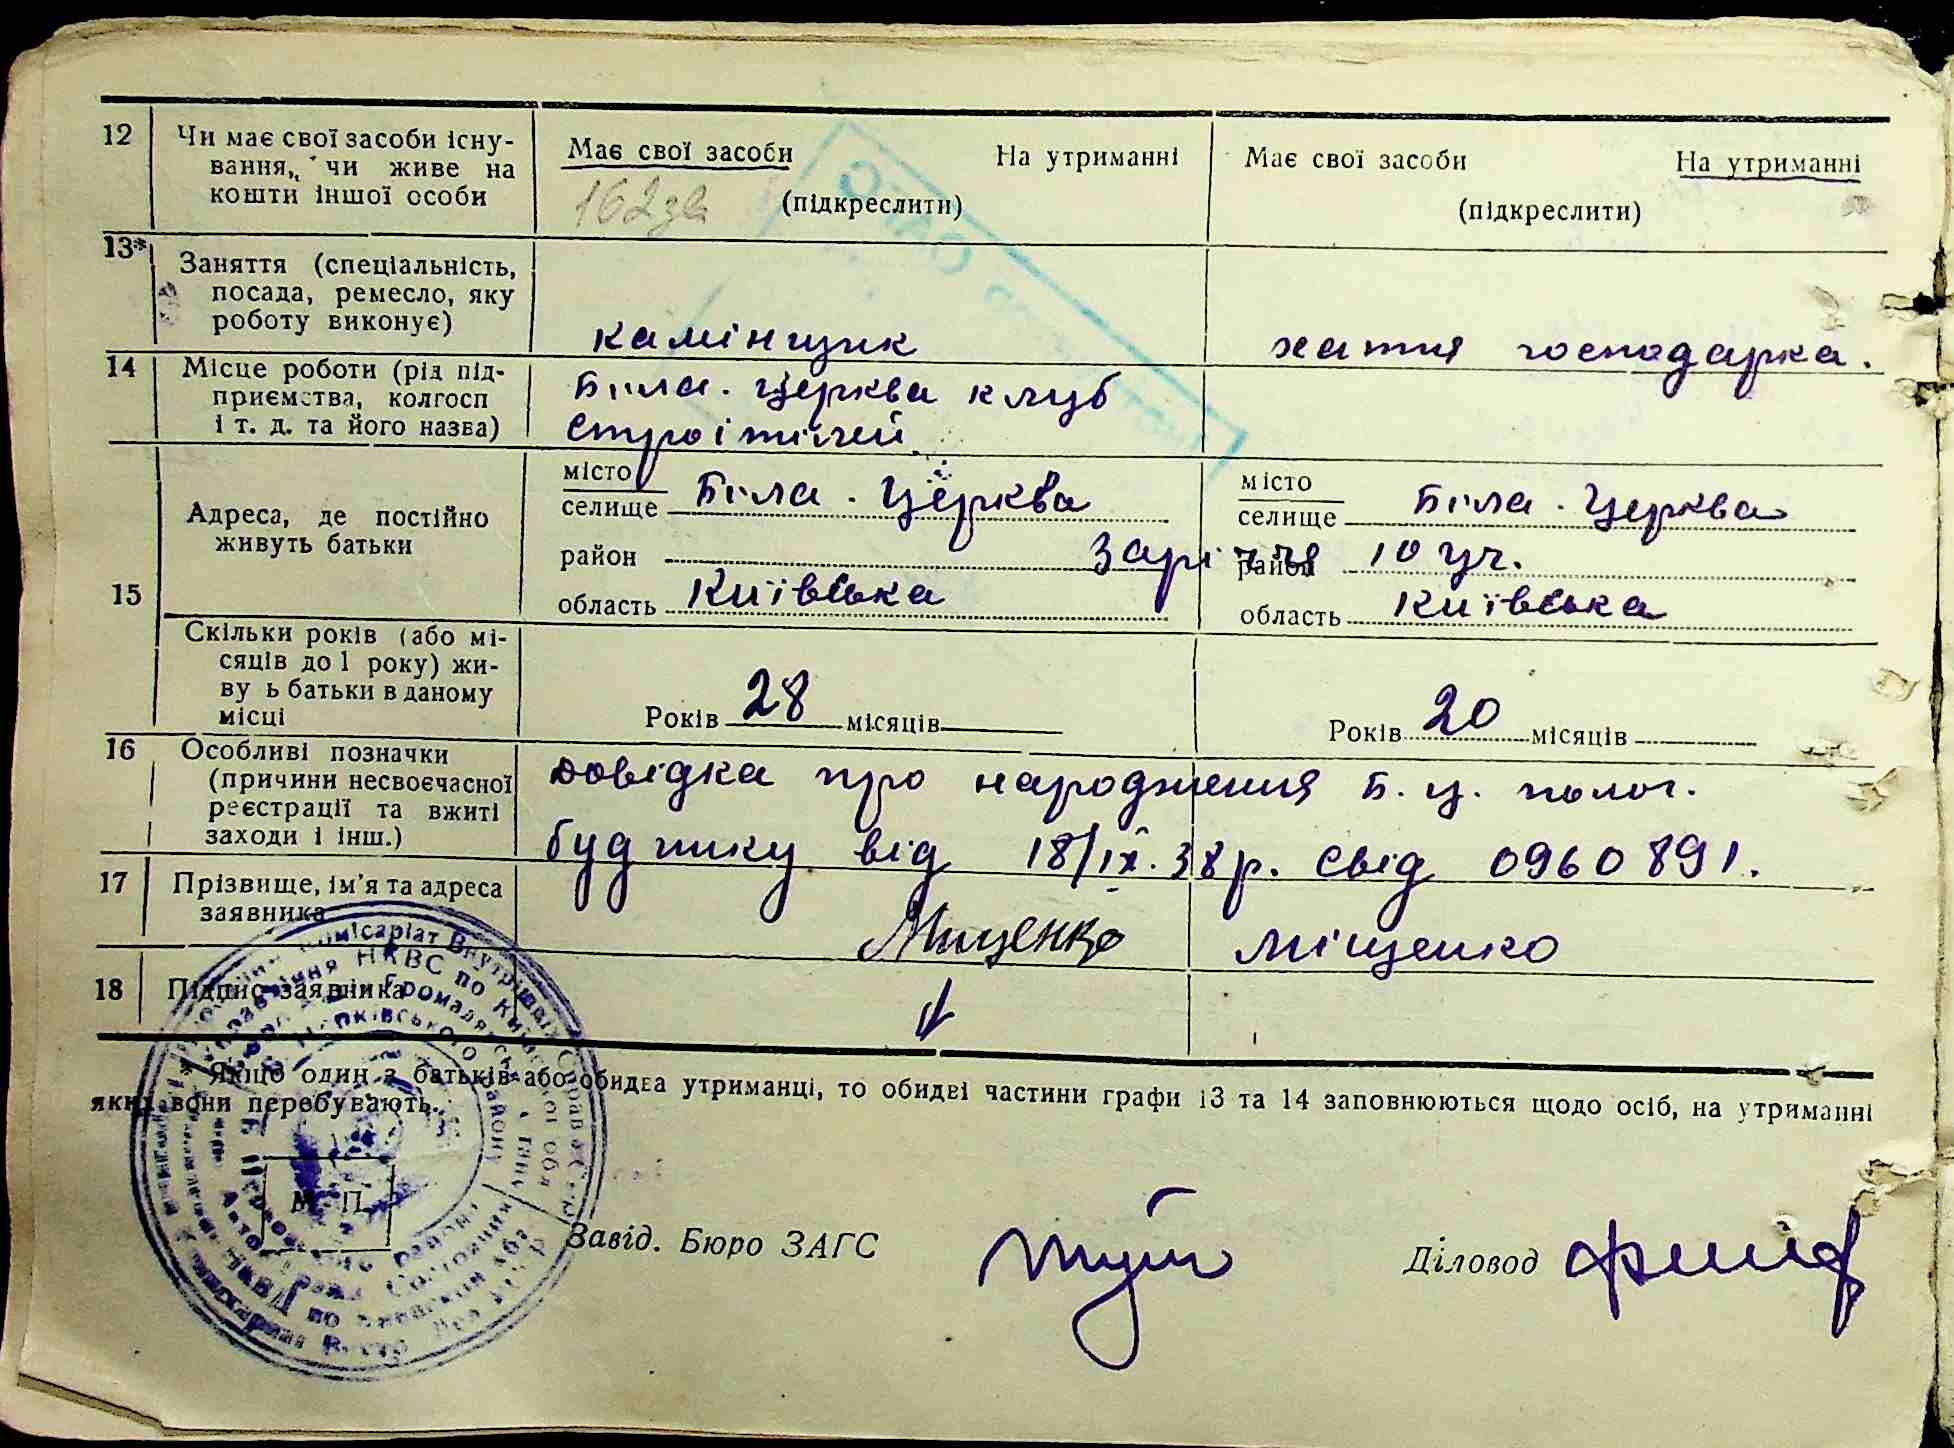 12 Чи має свої засоби існу-
вання, чи живе на
кошти іншої особи
Має свої засоби На утриманні
162зв
(підкреслити)
Має свої засоби На утриманні
(підкреслити)
13* Заняття (спеціальність,
посада, ремесло, яку
роботу виконує)
камінщик
хатня господарка.
14 Місце роботи (рід під-
приємства, колгосп
і т. д. та його назва)
Біла. Церква клуб
строітілей
15 Адреса, де постійно
живуть батьки
місто
селище Біла. Церква
район Заріччя 10 уч.
область Київська
місто
селище Біла. Церква
район
область Київська
Скільки років (або мі-
сяців до 1 року) жи-
ву ь батьки в даному
місці
Років 28 місяців
Років 20 місяців
16 Особливі позначки
(причини несвоєчасної
реєстрації та вжиті
заходи і інш.)
довідка про народження Б. ц. полог.
будинку від 18/ІХ.38р. Свід 0960891.
17 Прізвище, ім'я та адреса
заявника
Мищенко Міщенко
18 Підпис заявника
Якщо один з батьків або обидва утриманці, то обидві частини графи 13 та 14 заповнюються щодо осіб, на утриманні
яких вони перебувають.
М. П.
Завід. Бюро ЗАГС
Діловод